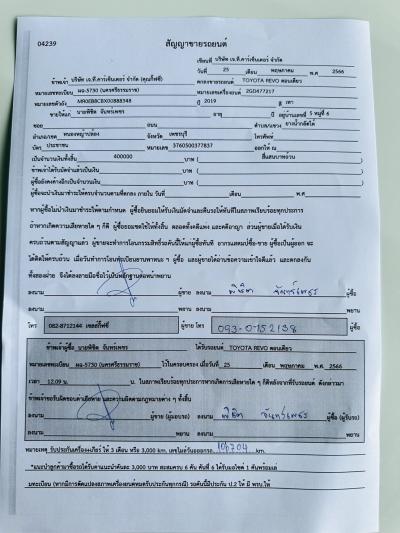 04239
สัญญาขายรถยนต์
เขียนที่ บริษัท เจ.ที.คาร์เซ็นเตอร์ จำกัด
วันที่ 25 เดือน พฤษภาคม พ.ศ 2566
ข้าพเจ้า บริษัท เจ.ที.คาร์เซ็นเตอร์ จำกัด (คุณกี้ฟซี่) ตกลงขายรถยนต์ TOYOTA REVO ตอนเดียว
หมายเลขทะเบียน ผอ-5730 (นครศรีธรรมราช) หมายเลขเครื่องยนต์ 2GD477217
หมายเลขตัวถัง MR0EB8CBX00888348 ปี 2019 สี เทา
ขายให้แก่ นายพิชิต จันทร์เพชร อายุ ปี อยู่บ้านเลขที่ 5 หมู่ที่ 6
ซอย ถนน ตำบล/แขวง ยางน้ำกลัดใต้
อำเภอ/เขต หนองหญ้าปล้อง จังหวัด เพชรบุรี โทรศัพท์
บัตร ประชาชน หมายเลข 3760500377837 ออกให้ ณ
เป็นจำนวนเงินทั้งสิ้น 400000 บาท ( สี่แสนบาทถ้วน )
ข้าพเจ้าได้รับมัดจำแล้วเป็นเงิน บาท ( )
ผู้ซื้อยังคงค้างอีกเป็นจำนวนเงิน บาท ( )
ผู้ซื้อจะนำเงินมาชำระให้ครบจำนวนตามที่ตกลง ภายใน วันที่ เดือน พ.ศ
หากผู้ซื้อไม่นำเงินมาชำระให้ตามกำหนด ผู้ซื้อยินยอมให้ริบเงินมัดจำและคืนรถให้ทันทีในสภาพเรียบร้อยทุกประการ
ถ้าหากเกิดความเสียหายใด ๆ ก็ดี ผู้ซื้อยอมชดใช้ให้ทั้งสิ้น ตลอดทั้งคดีแพ่ง และคดีอาญา ส่วนผู้ขายเมื่อได้รับเงิน
ครบถ้วนตามสัญญาแล้ว ผู้ขายจะทำการโอนกรรมสิทธิ์รถคันนี้ให้แก่ผู้ซื้อทันที อากรแสตมป์ซื้อ-ขาย ผู้ซื้อเป็นผู้ออก จะ
ได้ติดให้ครบถ้วน เมื่อวันทำการโอนทะเบียนยานพาหนะ ๆ ผู้ซื้อ และผู้ขายได้อ่านข้อความเข้าใจดีแล้ว และตกลงกัน
ทั้งสองฝ่าย จึงได้ลงลายมือชื่อไว้เป็นหลักฐานต่อหน้าพยาน
ลงนาม ผู้ขาย ลงนาม พิชิต จันทร์เพชร ผู้ซื้อ
ลงนาม พยาน ลงนาม พยาน
โทร 082-8712144 เซลล์กี้ฟซี่ ผู้ขาย โทร 093-0152138 ผู้ซื้อ
ข้าพเจ้าผู้ซื้อ นายพิชิต จันทร์เพชร ได้รับรถยนต์ TOYOTA REVO ตอนเดียว
หมายเลขทะเบียน ผอ-5730 (นครศรีธรรมราช) ไว้ในครอบครอง เมื่อวันที่ 25 เดือน พฤษภาคม พ.ศ. 2566
เวลา 12.09 น. น. ในสภาพเรียบร้อยทุกประการหากเกิดการเสียหายใด ๆ ก็ดีหลังจากที่รับรถยนต์ ดังกล่าวมา
ข้าพเจ้าขอรับผิดชอบต่อค่าเสียหาย และความผิดตามกฎหมายต่าง ๆ ทั้งสิ้น
ลงนาม ผู้ขาย (ผู้มอบรถ) ลงนาม พิชิต จันทร์เพชร ผู้ซื้อ (ผู้รับรถ)
ลงนาม พยาน ลงนาม พยาน
หมายเหตุ รับประกันเครื่อง+เกียร์ ให้ 3 เดือน หรือ 3,000 km. เลขไมล์วันออกรถ km.
*แนะนำลูกค้ามาซื้อรถได้รับค่าแนะนำคันละ 3,000 บาท สะสมครบ 6 คัน คันที่ 6 ได้รับมอไซค์ 1 คันพร้อมเล่
มทะเบียน (หากมีการดัดแปลงสภาพเครื่องยนต์หมดรับประกันทุกกรณี) รถคันนี้มีประกัน ป.2 ให้ มี พรบ.ให้